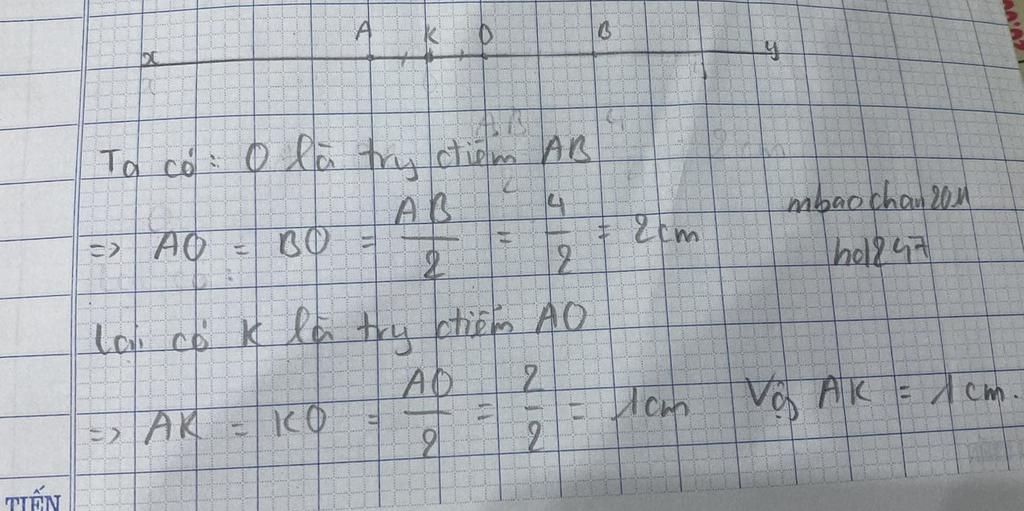 x A K O B y
Ta có: O là try điểm AB
=> AO = BO = AB/2 = 4/2 = 2cm
mbaochau2011
hdl247
Lại có K là try điểm AO
=> AK = KO = AO/2 = 2/2 = 1cm Vậy AK = 1cm.
TIẾN